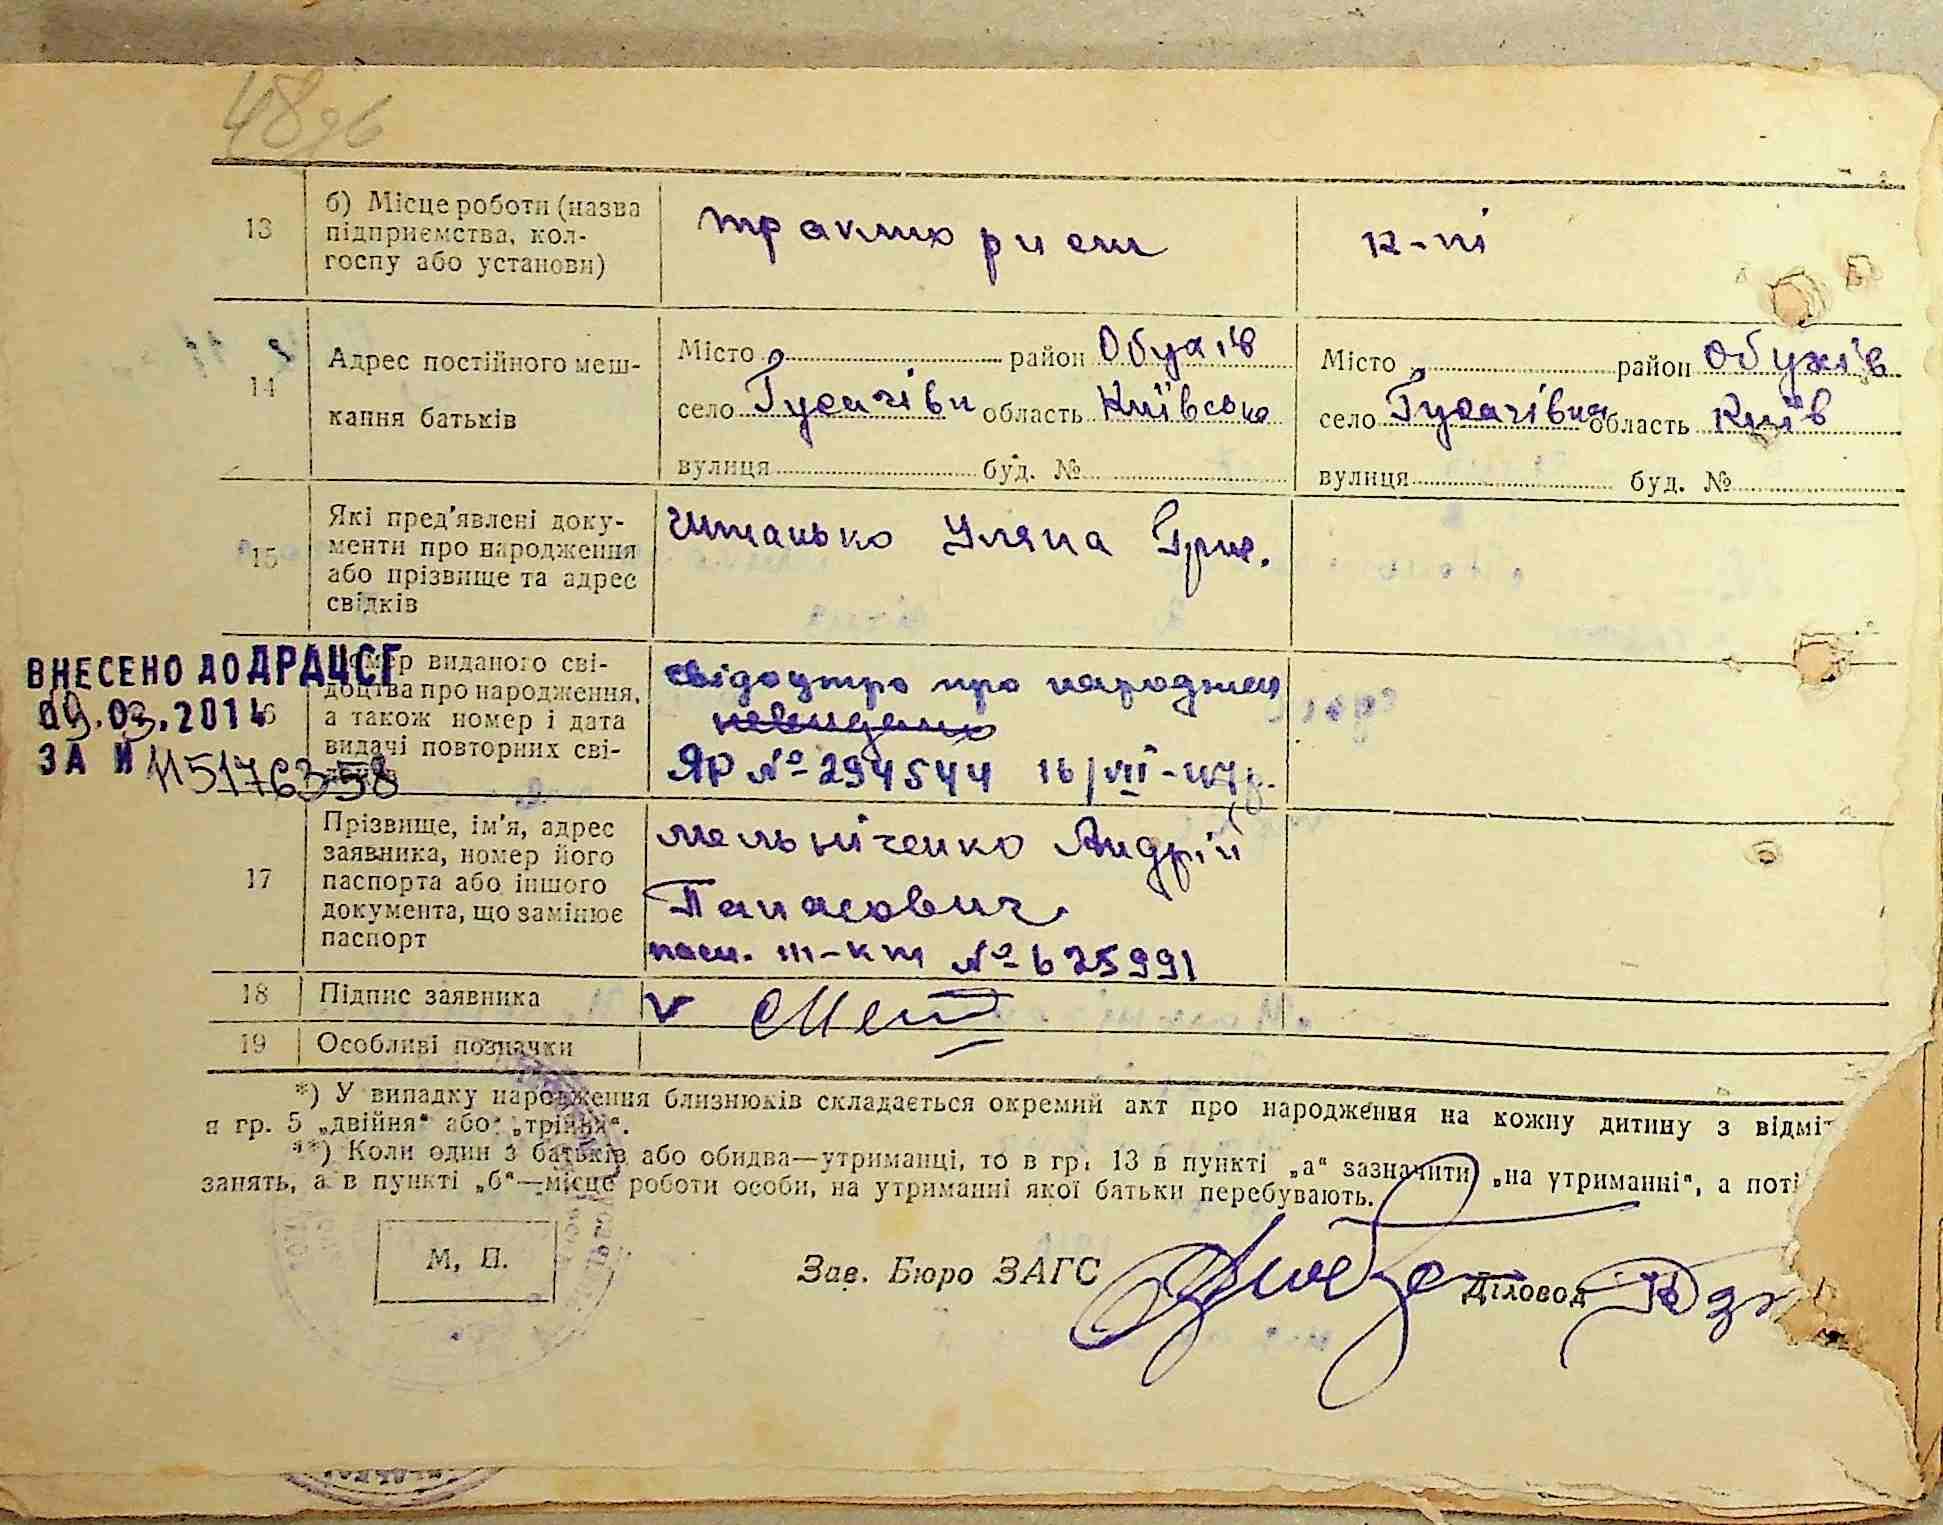 48
13
б) Місце роботи (назва
підприємства, кол-
госпу або установи)
тракторист
к-ці
14
Адрес постійного меш-
кання батьків
Місто район Обухів
село Гусачівк область Київська
вулиця буд. №
Місто район Обухів
село Гусачівка область Київ
вулиця буд. №
15
Які пред'явлені доку-
менти про народження
або прізвище та адрес
свідків
Уляна Григ.
ВНЕСЕНО ДО ДРАЦСГ
09.03.2014
ЗА №
1151763
номер виданого сві-
доцтва про народження,
а також номер і дата
видачі повторних сві-
про народжен
невидано
ЯР № 294544 16/VII-47р.
17
Прізвище, ім'я, адрес
заявника, номер його
паспорта або іншого
документа, що замінює
паспорт
Мельніченко Андрій
Панасович
пасп. III-КШ № 625991
18
Підпис заявника
v
19
Особливі позначки
*) У випадку народження близнюків складається окремий акт про народження на кожну дитину з відміт
я гр. 5 „двійня“ або „трійня“.
**) Коли один з батьків або обидва—утриманці, то в гр. 13 в пункті „а“ зазначити „на утриманні“, а поті
занять, а в пункті „б“—місце роботи особи, на утриманні якої батьки перебувають.
М. П.
Зав. Бюро ЗАГС
Діловод